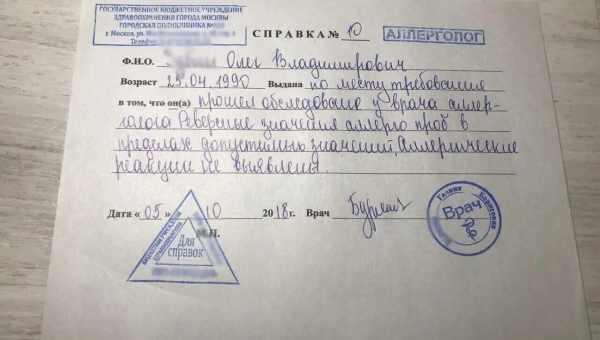 ГОСУДАРСТВЕННОЕ БЮДЖЕТНОЕ УЧРЕЖДЕНИЕ
ЗДРАВООХРАНЕНИЯ ГОРОДА МОСКВЫ
ГОРОДСКАЯ ПОЛИКЛИНИКА
г. Москва, ул.
Телефон
СПРАВКА № 10
АЛЛЕРГОЛОГ
Ф.И.О. Олег Владимирович
Возраст 25.04.1990 Выдана по месту требования
в том, что он(а) прошел обследование у врача аллер-
голога Реверсные значения аллерго проб в
пределах допустимых значений, Аллергические
реакции не выявлены.
Дата «05» 10 2018г. Врач
М.П.
Для
справок
Врач